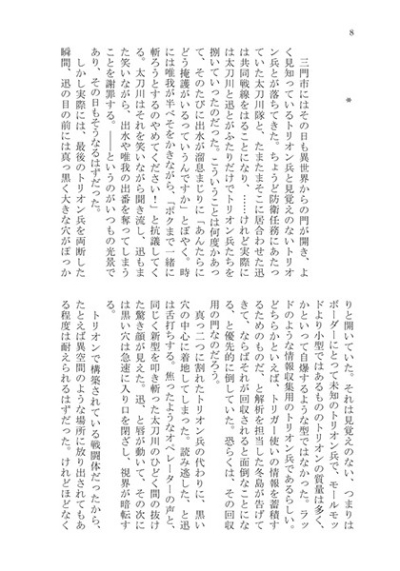 8
*
三門市にはその日も異世界からの門が開き、よ
く見知っているトリオン兵と見覚えのないトリオ
ン兵とが落ちてきた。ちょうど防衛任務にあたっ
ていた太刀川隊と、たまたまそこに居合わせた迅
は共同戦線をはることになり、……けれど実際に
は太刀川と迅とがふたりだけでトリオン兵たちを
捌いていったのだった。こういうことは何度かあっ
て、そのたびに出水が溜息まじりに「あんたらに
どう掩護がいるっていうんですか」とぼやく。時
には唯我が半べそをかきながら、「ボクまで一緒に
斬ろうとするのやめてください！」と抗議してく
る。太刀川はそれを笑いながら聞き流し、迅もま
た笑いながら、出水や唯我の出番を奪ってしまう
ことを謝罪する。――というのがいつもの光景で
あり、その日もそうなるはずだった。
しかし実際には、最後のトリオン兵を両断した
瞬間、迅の目の前には真っ黒く大きな穴がぽっか
りと開いていた。それは見覚えのない、つまりは
ボーダーにとって未知のトリオン兵で、モールモッ
ドより小型ではあるもののトリオンの質量は多く、
かといって自爆するような型ではなかった。ラッ
ドのような情報収集用のトリオン兵であるらしい。
どちらかといえば、トリガー使いの情報を蓄積す
るためのものだ、と解析を担当した冬島が告げて
きて、ならばそれが回収されると面倒なことにな
る、と優先的に倒していた。恐らくは、その回収
用の門なのだろう。
真っ二つに割れたトリオン兵の代わりに、黒い
穴の中心に着地してしまった。読み逃した、と迅
は舌打ちする。焦ったようなオペレーターの声と、
同じく新型を叩き斬った太刀川のひどく間の抜け
た驚き顔が見えた。迅、と唇が動いて、その次に
は黒い穴は急速に入り口を閉ざし、視界が暗転す
トリオンで構築されている戦闘体だったから、
たとえば異空間のような場所に放り出されてもあ
る程度は耐えられるはずだった。けれどほどなく